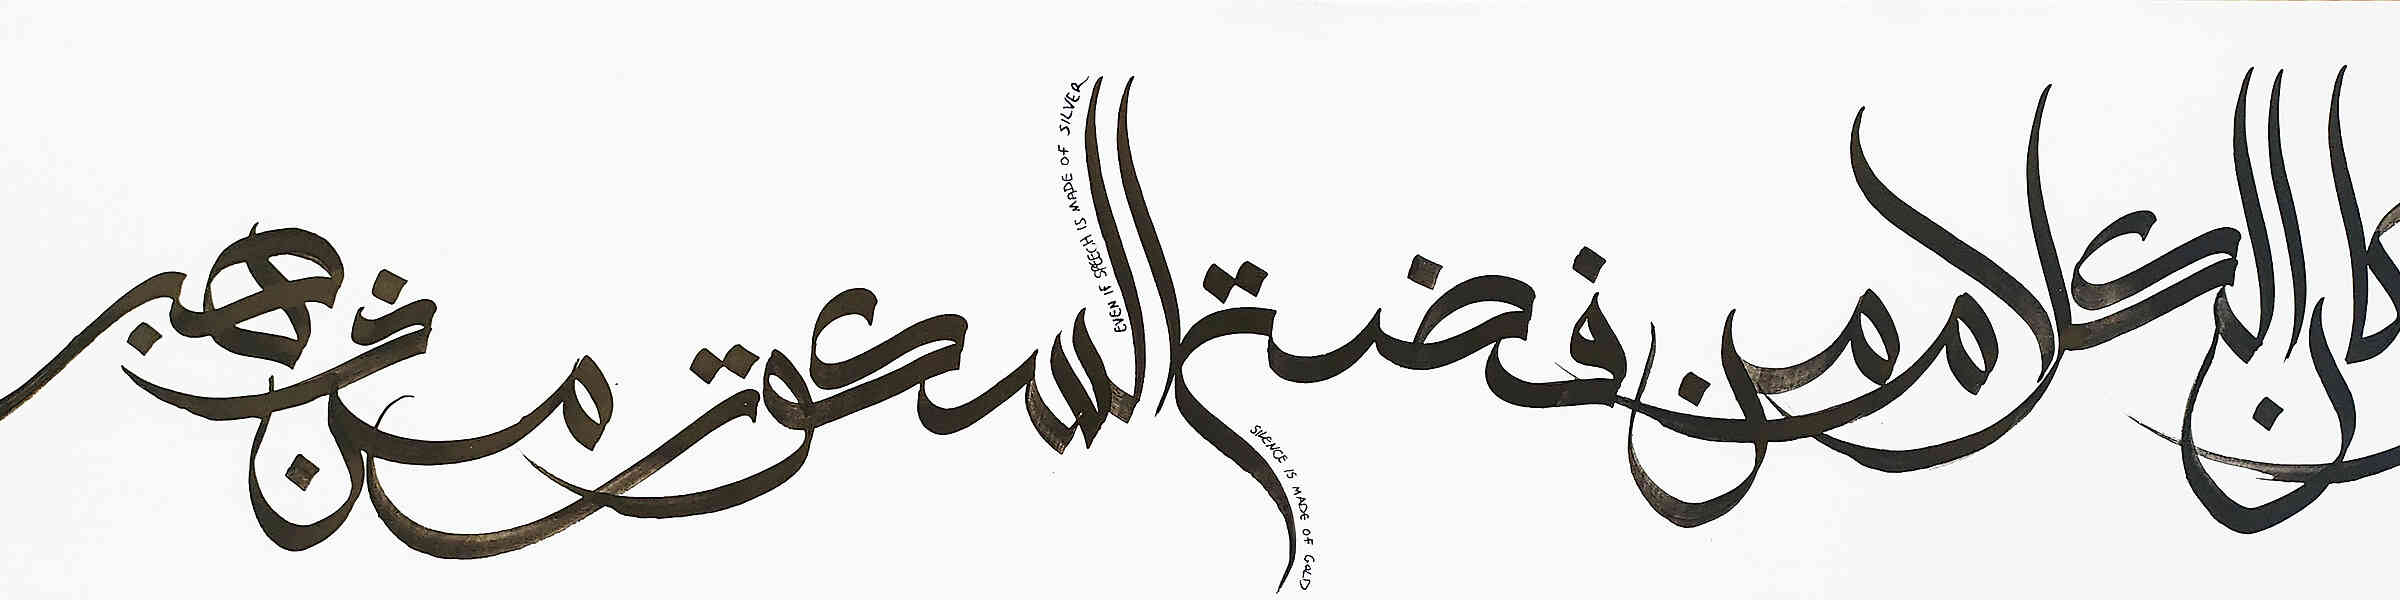 كان الكلام من فضة السكوت من ذهب
EVEN IF SPEECH IS MADE OF SILVER
SILENCE IS MADE OF GOLD